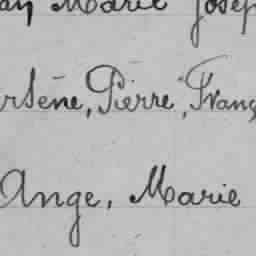 an Marie Josep
rsène, Pierre, Franç
Ange, Marie